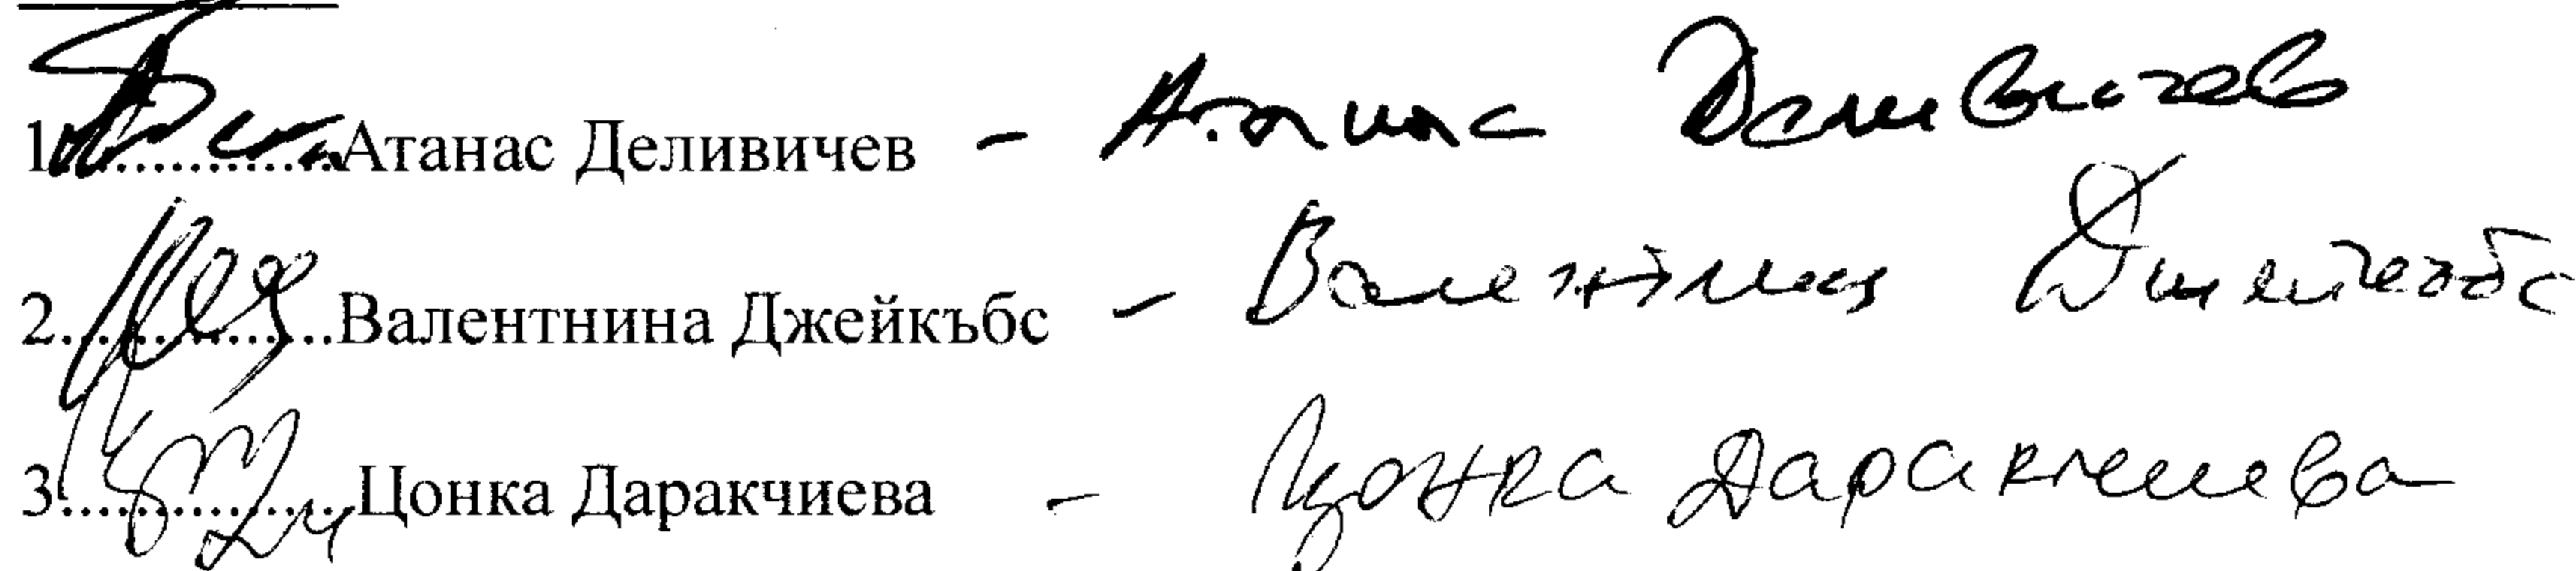 1..............Атанас Деливичев - Атанас Деливичев
2...............Валентнина Джейкъбс - Валентина Джейкъбс
3................Цонка Даракчиева - Цонка Даракчиева